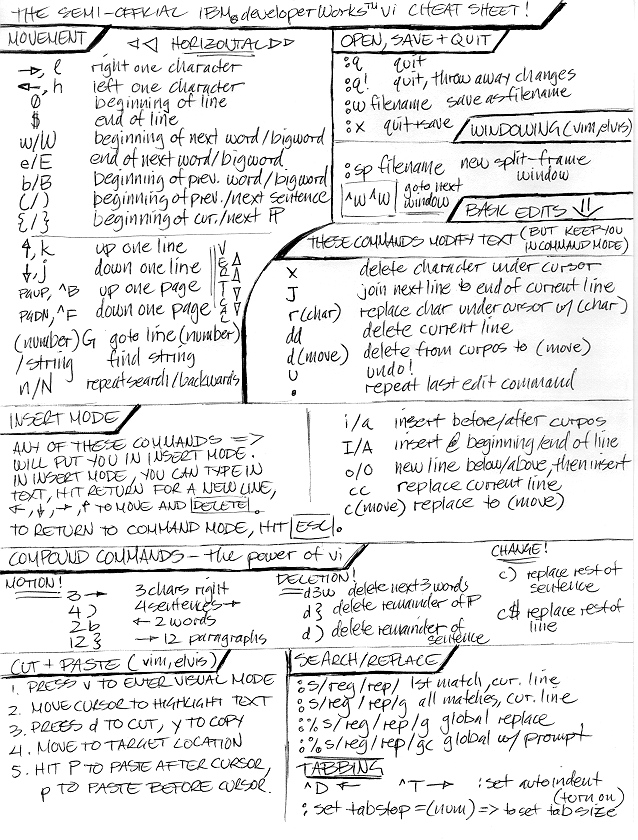 THE SEMI-OFFICIAL IBM® developerWorks™ vi CHEAT SHEET!
MOVEMENT
◁◁ HORIZONTAL ▷▷
→, l right one character
←, h left one character
0 beginning of line
$ end of line
w/W beginning of next word/bigword
e/E end of next word/bigword
b/B beginning of prev. word/bigword
(/) beginning of prev./next sentence
{/} beginning of cur./next ¶
↑, k up one line
↓, j down one line
PGUP, ^B up one page
PGDN, ^F down one page
VERTICAL
(number)G goto line (number)
/string find string
n/N repeat search/backwards
OPEN, SAVE + QUIT
:q quit
:q! quit, throw away changes
:w filename save as filename
:x quit+save
WINDOWING (vim, elvis)
:sp filename new split-frame
window
^W ^W goto next
window
BASIC EDITS ⇓
THESE COMMANDS MODIFY TEXT (BUT KEEP YOU
IN COMMAND MODE)
x delete character under cursor
J join next line to end of current line
r(char) replace char under cursor w/(char)
dd delete current line
d(move) delete from curpos to (move)
u undo!
. repeat last edit command
INSERT MODE
ANY OF THESE COMMANDS =>
WILL PUT YOU IN INSERT MODE.
IN INSERT MODE, YOU CAN TYPE IN
TEXT, HIT RETURN FOR A NEW LINE,
←, ↓, →, ↑ TO MOVE AND DELETE.
TO RETURN TO COMMAND MODE, HIT ESC.
i/a insert before/after curpos
I/A insert @ beginning/end of line
o/O new line below/above, then insert
cc replace current line
c(move) replace to (move)
COMPOUND COMMANDS - the power of vi
MOTION!
3→ 3 chars right
4) 4 sentences →
2b ← 2 words
12} → 12 paragraphs
DELETION!
d3w delete next 3 words
d} delete remainder of ¶
d) delete remainder of
sentence
CHANGE!
c) replace rest of
sentence
c$ replace rest of
line
CUT + PASTE (vim, elvis)
1. PRESS v TO ENTER VISUAL MODE
2. MOVE CURSOR TO HIGHLIGHT TEXT
3. PRESS d TO CUT, y TO COPY
4. MOVE TO TARGET LOCATION
5. HIT P TO PASTE AFTER CURSOR,
p TO PASTE BEFORE CURSOR.
SEARCH/REPLACE
:s/reg/rep/ 1st match, cur. line
:s/reg/rep/g all matches, cur. line
:%s/reg/rep/g global replace
:%s/reg/rep/gc global w/ prompt
TABBING
^D ← ^T → :set autoindent
(turn on)
:set tabstop=(num) => to set tab size